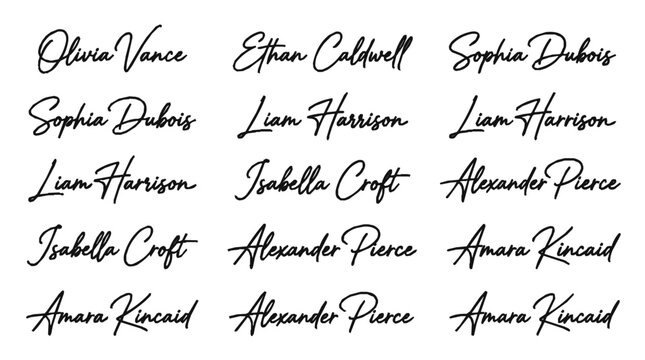 Olivia Vance Ethan Caldwell Sophia Dubois
Sophia Dubois Liam Harrison Liam Harrison
Liam Harrison Isabella Croft Alexander Pierce
Isabella Croft Alexander Pierce Amara Kincaid
Amara Kincaid Alexander Pierce Amara Kincaid